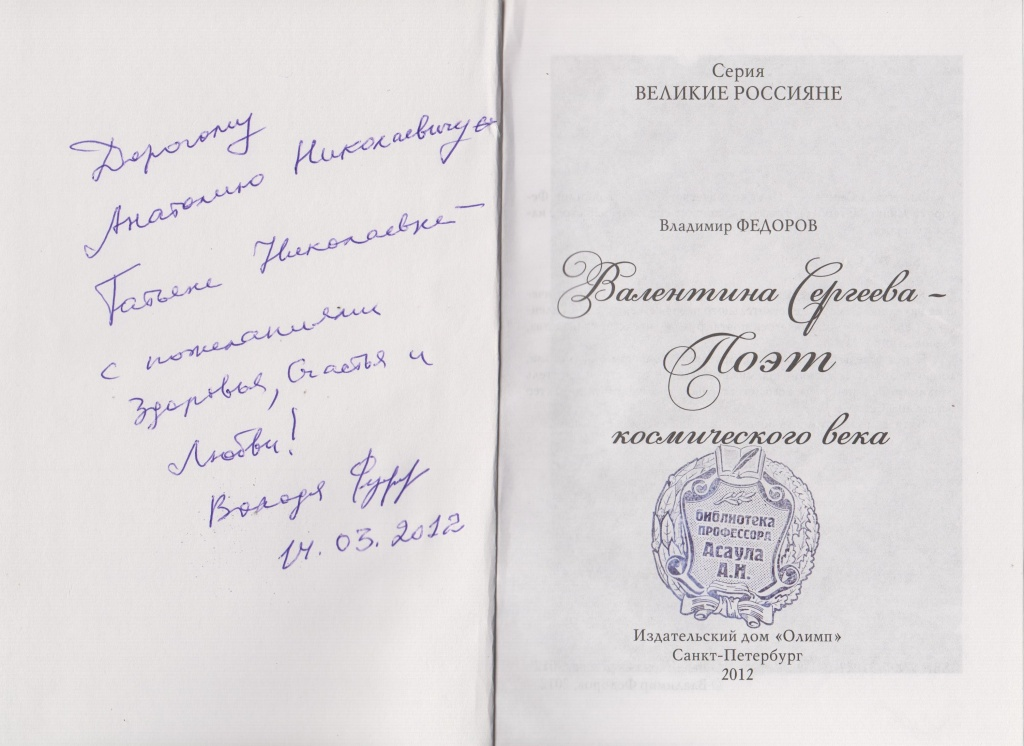 Дорогому
Анатолию Николаевичу и
Татьяне Николаевне –
с пожеланиями
Здоровья, Счастья и
Любви!
Володя
14.03.2012
Серия
ВЕЛИКИЕ РОССИЯНЕ
Владимир ФЕДОРОВ
Валентина Сергеева –
Поэт
космического века
БИБЛИОТЕКА
ПРОФЕССОРА
Асаула
А.Н.
Издательский дом «Олимп»
Санкт-Петербург
2012